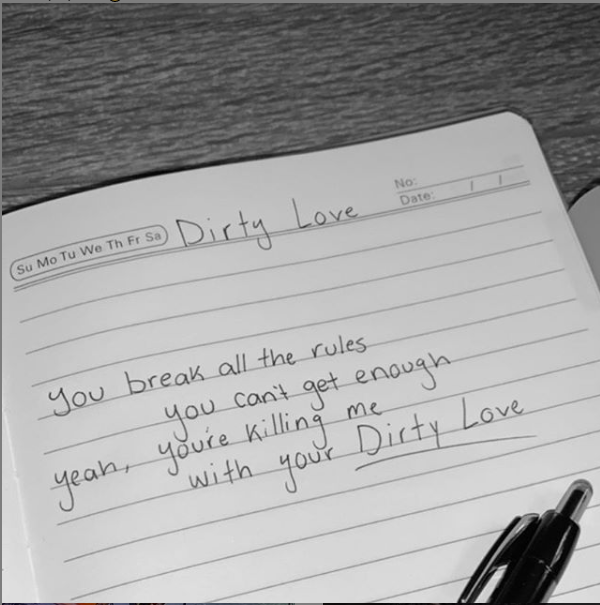 No:
Date: / /
Su Mo Tu We Th Fr Sa
Dirty Love
you break all the rules
you can't get enough
yeah, you're killing me
with your Dirty Love